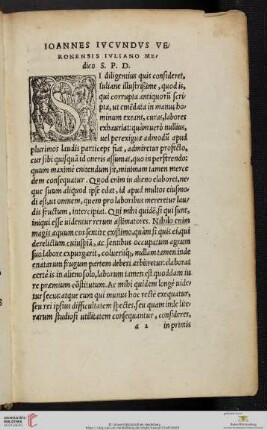 IOANNES IVCVNDVS VE/
RONENSIS IVLIANO ME/
dico S. P. D.
SI diligentius quis consideret,
Iuliane illustrissime, quod is,
qui corrupta antiquorū scri
pta, ut emēdata in manus ho
minum exeant, curas, labores
exhauriat: quàm uerò nullius,
uel perexiguæ admodū apud
plurimos laudis particeps fiat, admiretur profectò,
cur sibi quisquā id oneris assumat, quo in perferendo:
quum maxime enitendum sit, minimam tamen merce
dem consequatur. Quod enim in alieno elaboret, ne
que suum aliquod ipse edat, id apud multos eiusmo/
di est, ut omnem, quem pro laboribus mereretur lau/
dis fructum, intercipiat. Qui mihi quidē, si qui sunt,
iniqui esse uidentur rerum æstimatores. Nihilo enim
magis æquum censent existimo, quàm si quis
derelictum cuiuspiā, ac sentibus occupatum agrum
suo labore expurgarit, coluerítq;, nullam tamen inde
enatarum frugum partem debere arbitretur. elaborat
certè is in alieno solo, laborum tamen est quoddam iu
re præmium cōstitutum. Ac mihi quidem longè uide/
tur secus:atque eum qui munus hoc rectè exequatur,
seu rei ipsius difficultatem spectes, seu quam inde lite/
rarum studiosi utilitatem consequantur, consideres,
a 2 in primis